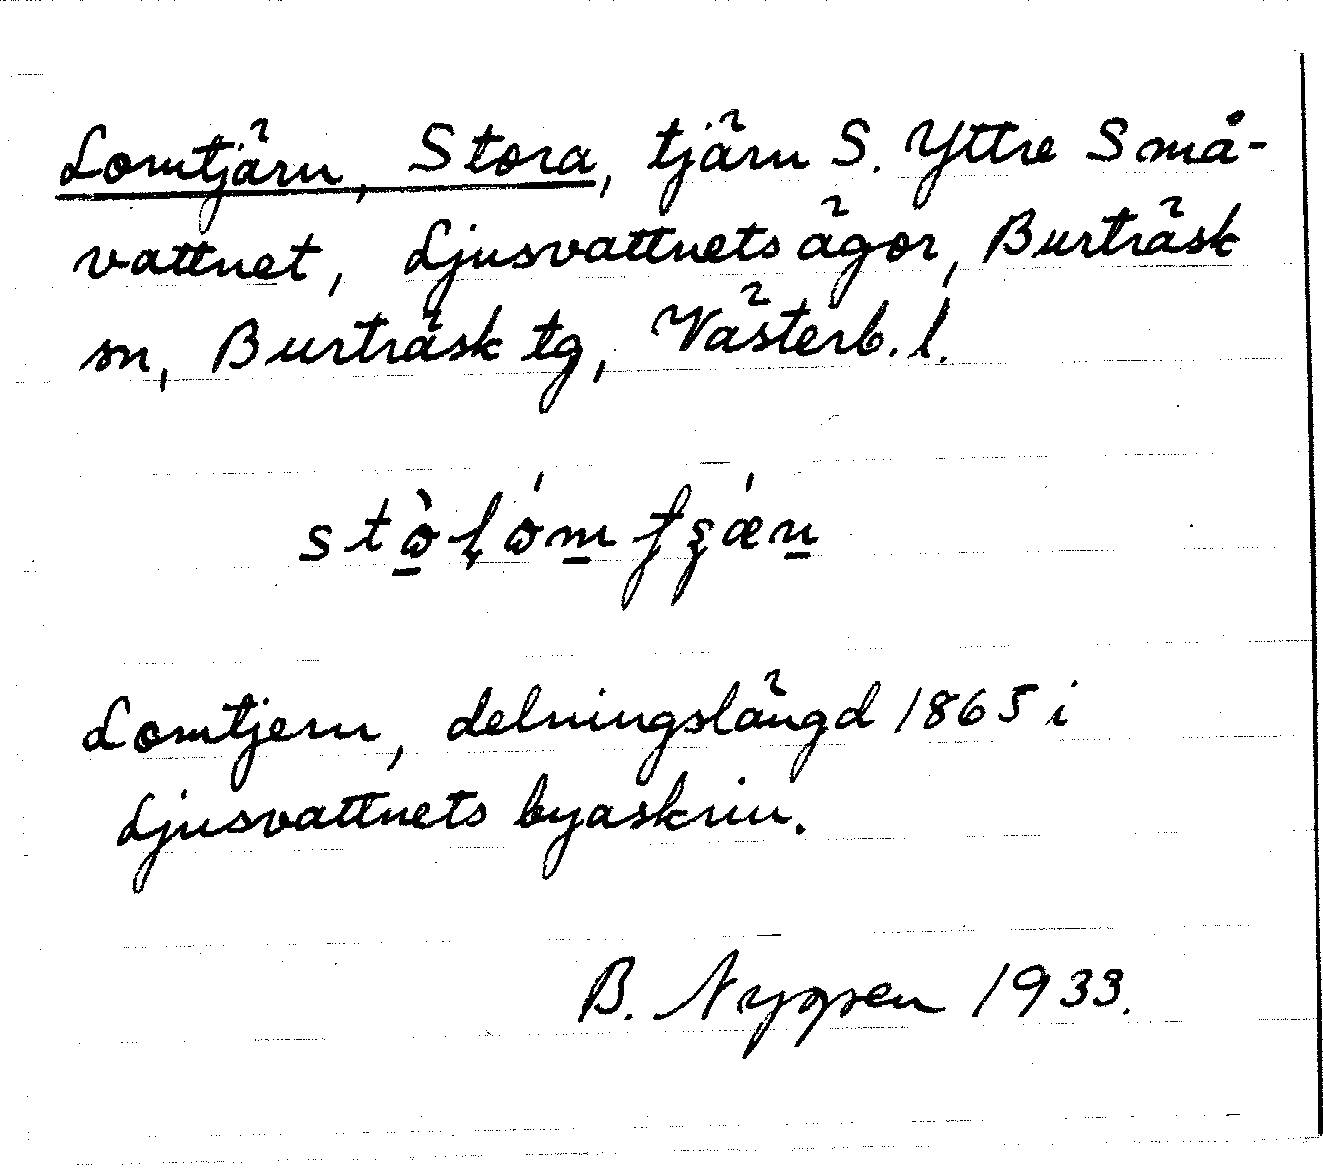 Lomtjärn, Stora, tjärn S. Yttre Små-
vattnet, Ljusvattnets ägor, Burträsk
sn, Burträsk tg, Västerb. l.
Lomtjern, delningslängd 1865 i
Ljusvattnets byaskrin.
B. Nygren 1933.